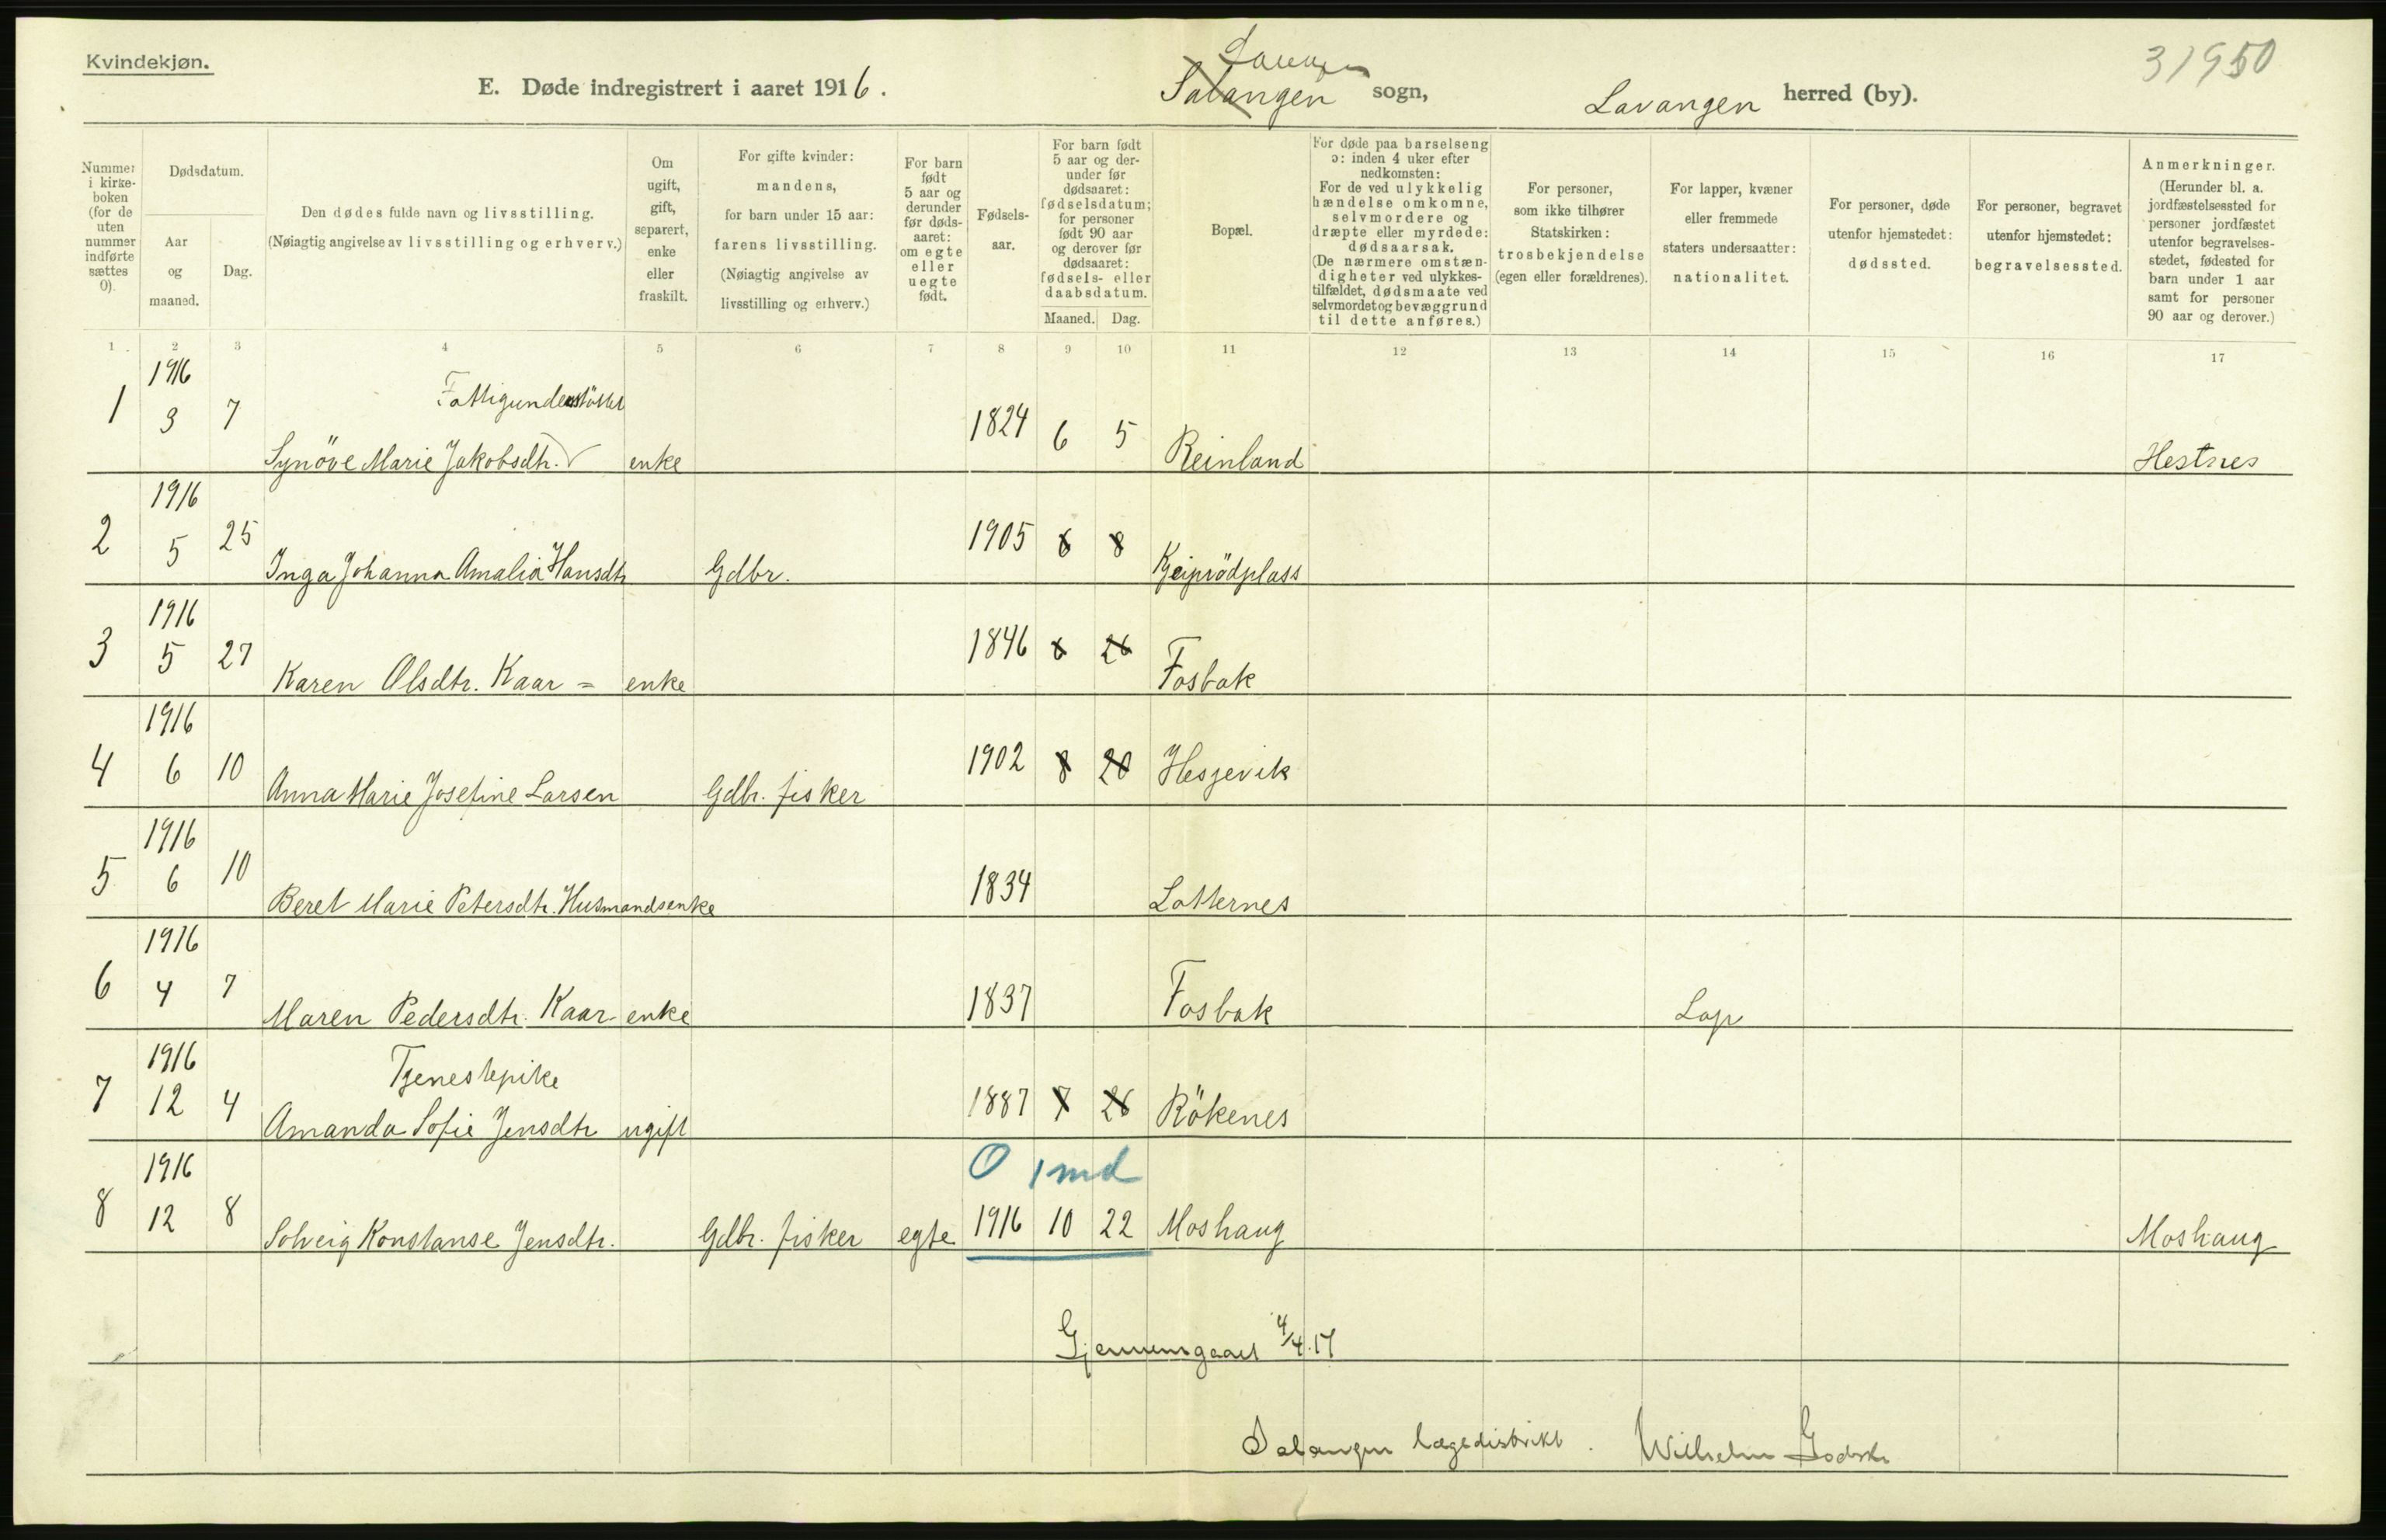 Kvindekjøn.
31950
E. Døde indregistrert i aaret 1916.
Salangen sogn,
Lavangen herred (by).
Nummer i kirke-
boken
(for de
uten
nummer
indførte
sættes
0).
Dødsdatum.
Aar
og
maaned.
Dag.
Den dødes fulde navn og livsstilling.
(Nøiagtig angivelse av livsstilling og erhverv.)
Om
ugift,
gift,
separert,
enke
eller
fraskilt.
For gifte kvinder:
mandens,
for barn under 15 aar:
farens livsstilling.
(Nøiagtig angivelse av
livsstilling og erhverv.)
For barn
født
5 aar og
derunder
før døds-
aaret:
om egte
eller
uegte
født.
Fødsels-
aar.
For barn født
5 aar og der-
under før
dødsaaret:
fødselsdatum;
for personer
født 90 aar
og derover før
dødsaaret:
fødsels- eller
daabsdatum.
Maaned. Dag.
Bopæl.
For døde paa barselseng
ɔ: inden 4 uker efter
nedkomsten:
For de ved ulykkelig
hændelse omkomne,
selvmordere og
dræpte eller myrdede:
dødsaarsak.
(De nærmere omstæn-
digheter ved ulykkes-
tilfældet, dødsmaate ved
selvmordet og bevæggrund
til dette anføres.)
For personer,
som ikke tilhører
Statskirken:
trosbekjendelse
(egen eller forældrenes).
For lapper, kvæner
eller fremmede
staters undersaatter:
nationalitet.
For personer, døde
utenfor hjemstedet:
dødssted.
For personer, begravet
utenfor hjemstedet:
begravelsessted.
Anmerkninger.
(Herunder bl. a.
jordfæstelsessted for
personer jordfæstet
utenfor begravelses-
stedet, fødested for
barn under 1 aar
samt for personer
90 aar og derover.)
1 2 3 4 5 6 7 8 9 10 11 12 13 14 15 16 17
1916
Fattigunderstöttet
1 3 7 Synöve Marie Jakobsdtr. enke 1824 6 5 Reinland Hestnes
1916
2 5 25 Inga Johanna Amalia Hansdtr Gdbr. 1905 6 8 Kjeiprödplass
1916
3 5 27 Karen Olsdtr. Kaar = enke 1846 6 26 Fosbak
1916
4 6 10 Anna Marie Josefine Larsen Gdbr. fisker 1902 8 20 Hesjevik
1916
5 6 10 Beret Marie Petersdtr. Husmandsenke 1834 Lotternes
1916
6 4 7 Maren Pedersdtr. Kaar enke 1837 Fosbak Lap
1916
Tjenestepike
7 12 4 Amanda Sofie Jensdtr ugift 1887 7 26 Rökenes
1916
0 1 md
8 12 8 Solveig Konstanse Jensdtr. Gdbr. fisker egte 1916 10 22 Moshaug Moshaug
Gjennemgaaet 4/4.17
Salangen lægedistrikt. Wilhelm